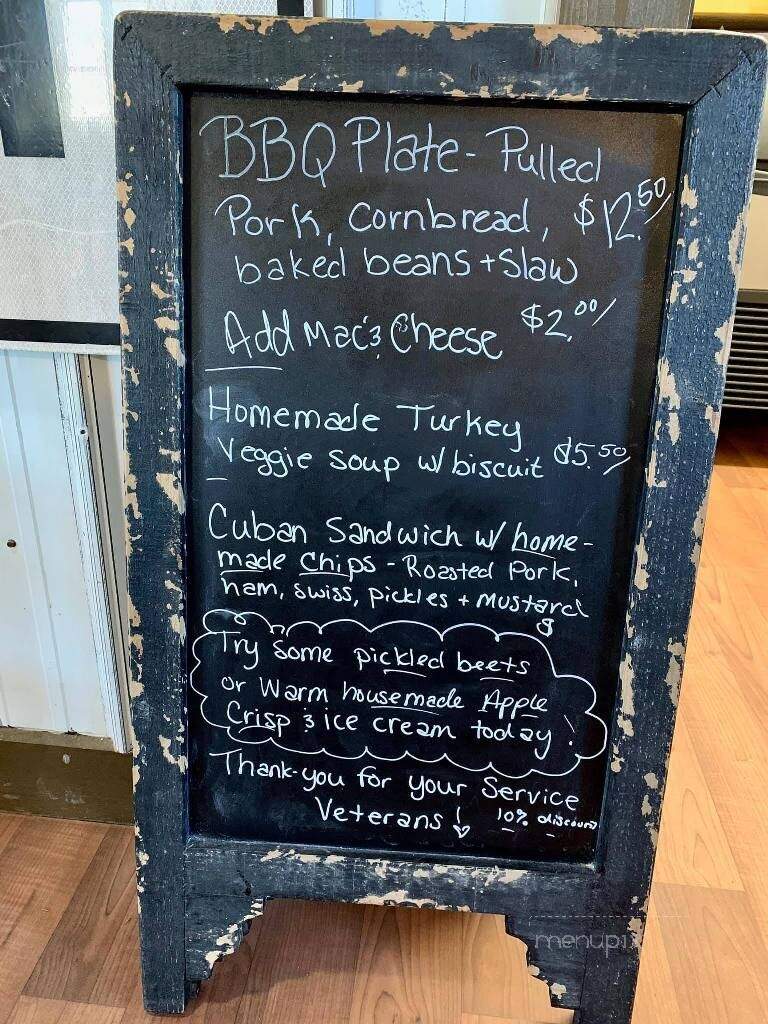 BBQ Plate - Pulled
Pork, cornbread, $12.50
baked beans + Slaw
Add Mac & Cheese $2.00
Homemade Turkey
Veggie Soup w/ biscuit $5.50
Cuban Sandwich w/ home-
made chips - Roasted Pork,
ham, swiss, pickles + Mustard
Try Some pickled beets
or Warm housemade Apple
Crisp & ice cream today!
Thank-you for your Service
Veterans! 10% discount
menupix